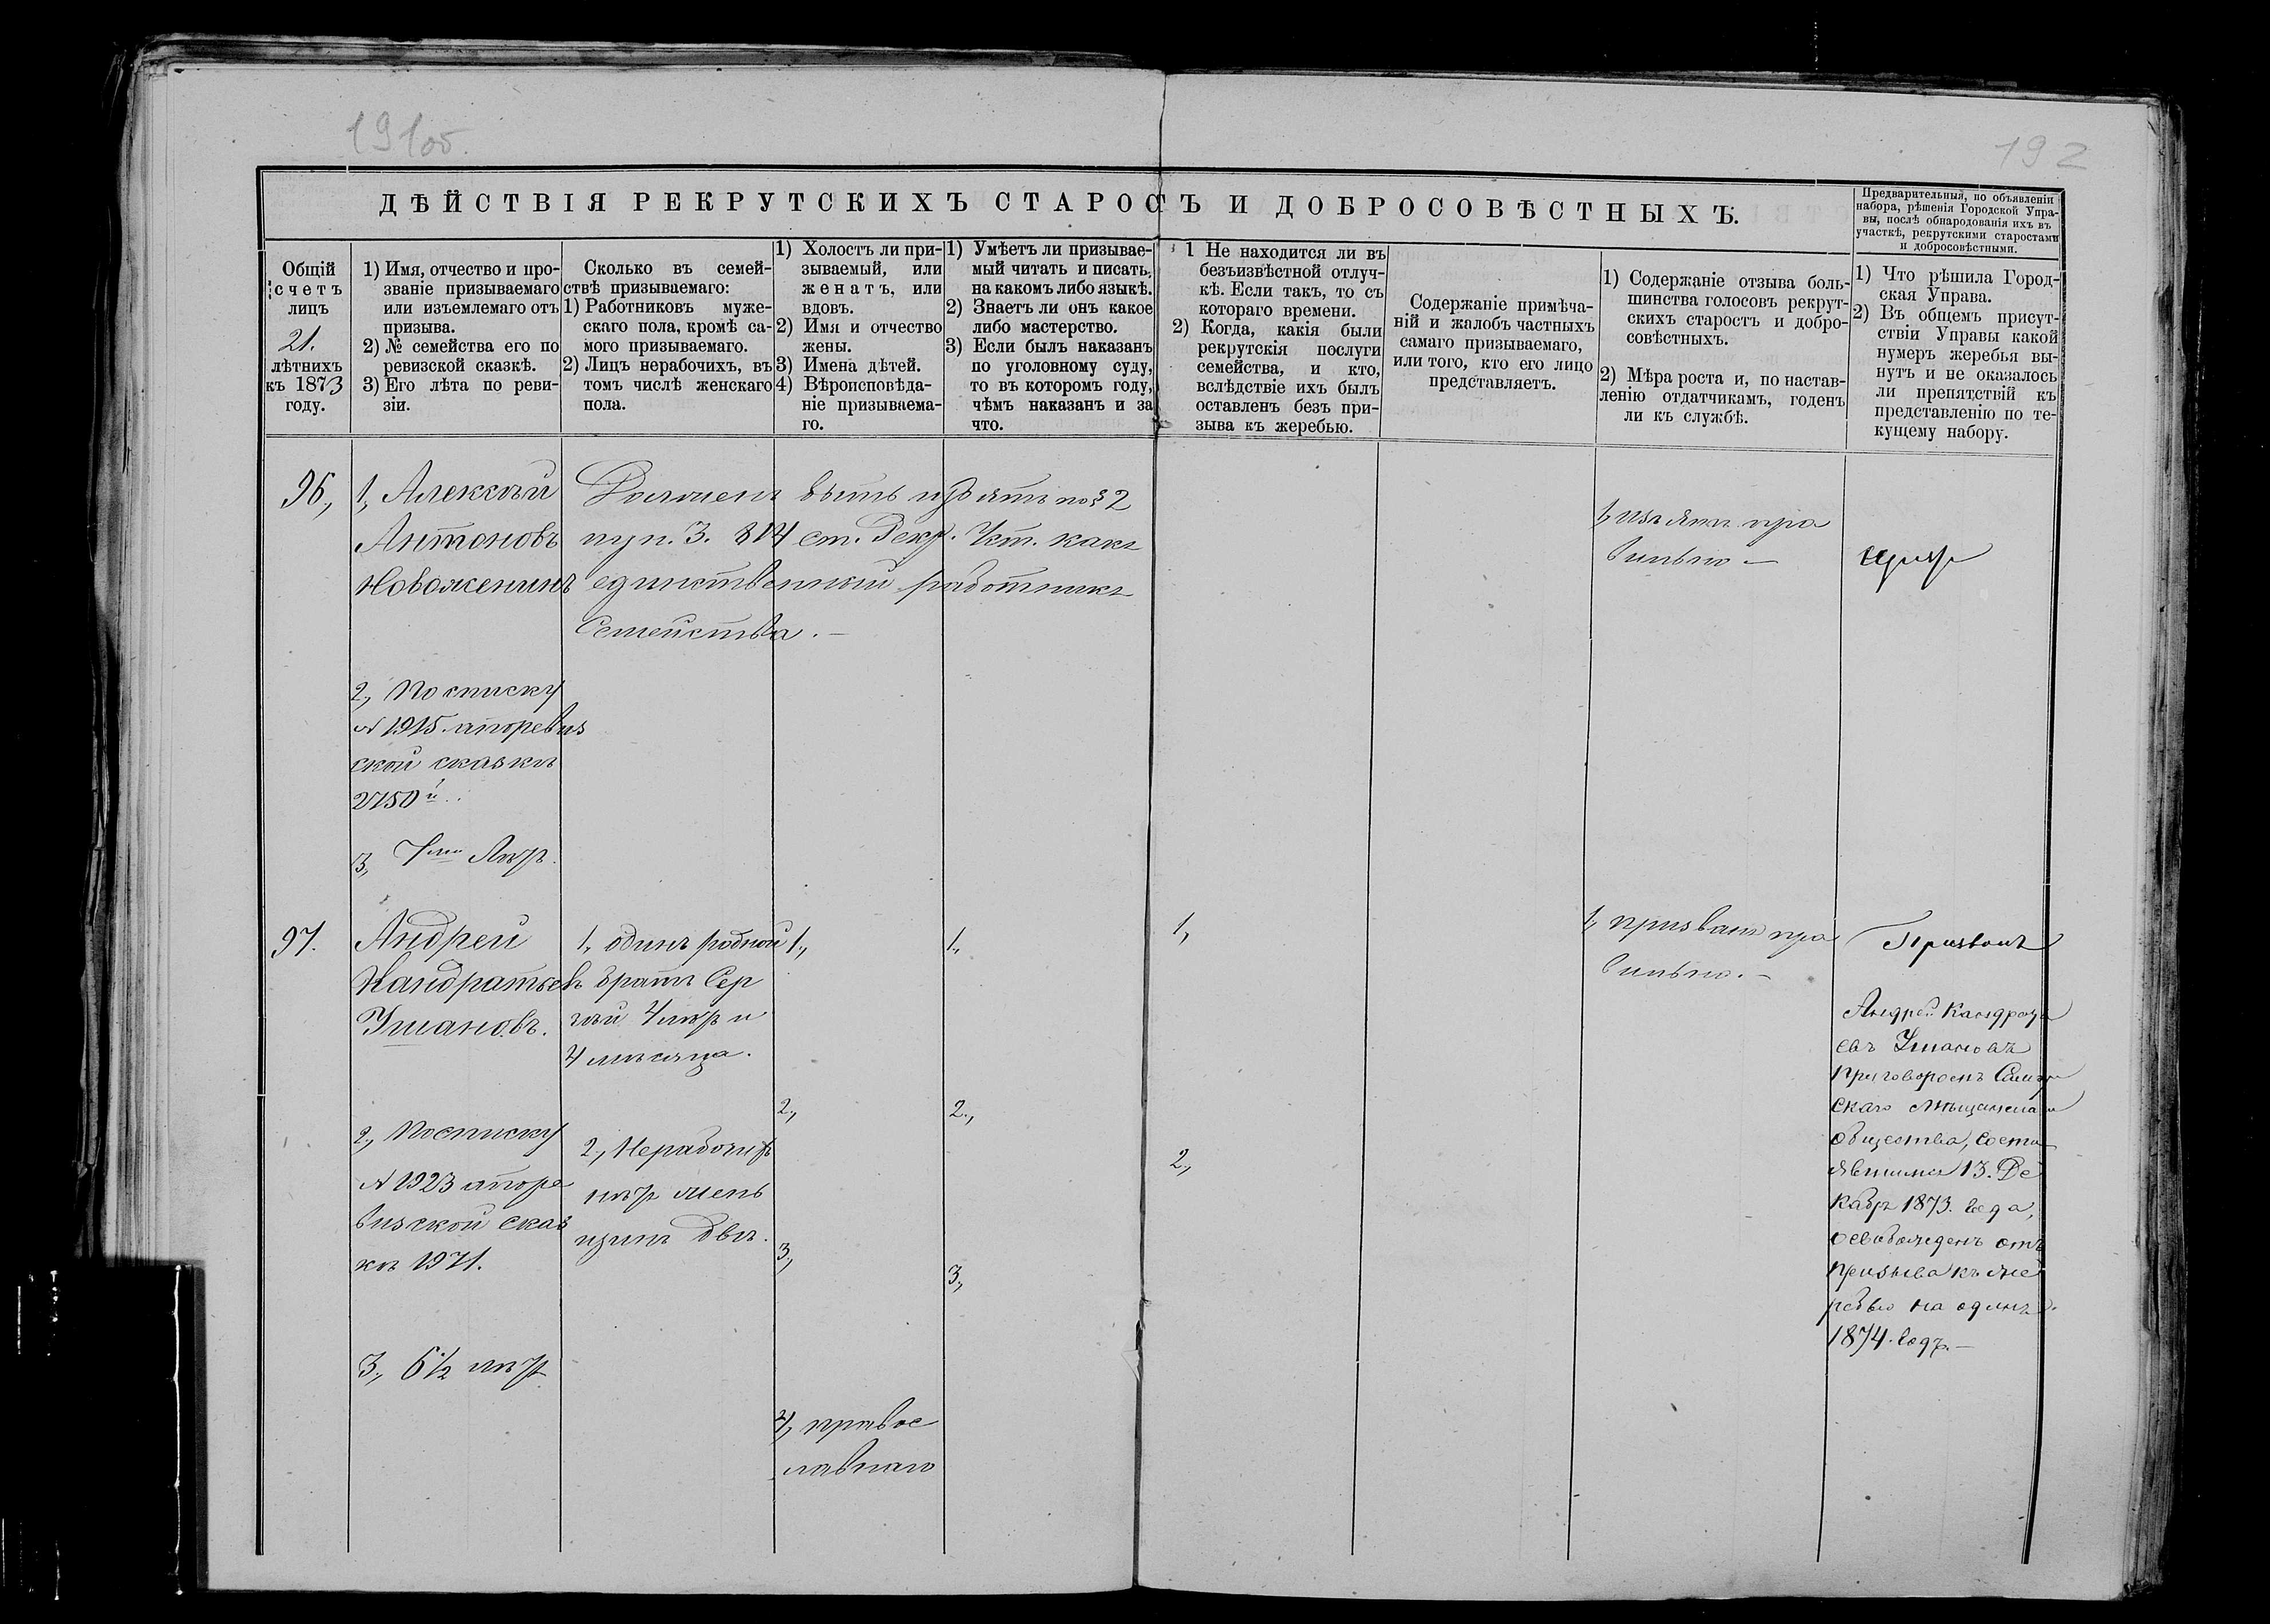 191об.
192
ДѢЙСТВІЯ РЕКРУТСКИХЪ СТАРОСТЪ И ДОБРОСОВѢСТНЫХЪ.
Предварительныя, по объявленіи
набора, рѣшенія Городской Упра-
вы, послѣ обнародованія ихъ въ
участкѣ, рекрутскими старостами
и добросовѣстными.
Общій
счетъ
лицъ
21.
лѣтнихъ
къ 1873
году.
1) Имя, отчество и про-
званіе призываемаго
или изъемлемаго отъ
призыва.
2) № семейства его по
ревизской сказкѣ.
3) Его лѣта по реви-
зіи.
Сколько въ семей-
ствѣ призываемаго:
1) Работниковъ муже-
скаго пола, кромѣ са-
мого призываемаго.
2) Лицъ нерабочихъ, въ
томъ числѣ женскаго
пола.
1) Холостъ ли при-
зываемый, или
женатъ, или
вдовъ.
2) Имя и отчество
жены.
3) Имена дѣтей.
4) Вѣроисповѣда-
ніе призываема-
го.
1) Умѣетъ ли призывае-
мый читать и писать,
на какомъ либо языкѣ.
2) Знаетъ ли онъ какое
либо мастерство.
3) Если былъ наказанъ
по уголовному суду,
то въ которомъ году,
чѣмъ наказанъ и за
что.
1 Не находится ли въ
безъизвѣстной отлуч-
кѣ. Если такъ, то съ
котораго времени.
2) Когда, какія были
рекрутскія послуги
семейства, и кто,
вслѣдствіе ихъ былъ
оставленъ безъ при-
зыва къ жеребью.
Содержаніе примѣча-
ній и жалобъ частныхъ
самаго призываемаго,
или того, кто его лицо
представляетъ.
1) Содержаніе отзыва боль-
шинства голосовъ рекрут-
скихъ старостъ и добро-
совѣстныхъ.
2) Мѣра роста и, по настав-
ленію отдатчикамъ, годенъ
ли къ службѣ.
1) Что рѣшила Город-
ская Управа.
2) Въ общемъ присут-
ствіи Управы какой
нумеръ жеребья вы-
нутъ и не оказалось
ли препятствій къ
представленію по те-
кущему набору.
96,
1, Алексѣй
Антоновъ
Новоженинъ
2, По списку
№ 1915 апоревиз
ской сказкѣ
2750й.
3, 7ми Лѣтъ.
Долженъ быть изъятъ по § 2
пун. 3. 814 ст. Рекр. Уст. какъ
единственный работникъ
Семейства.—
1, изъятъ пра
вильно —
97.
Андрей
Кандратьевъ
Ушановъ.
2, По списку
№ 1923 апоре
визской сказ
кѣ 1971.
3, 6½ лѣтъ
1, одинъ родной
братъ Сер
гѣй 4 лѣтъ и
4 мѣсяца.
2, Нерабочихъ
нѣтъ жен
щинъ двѣ.
1,
2,
3,
4, правос
лавнаго
1,
2,
3,
1,
2,
1, призванъ пра
вильно. —
Призванъ
Андрей Кандрать
евъ Ушановъ
приговоромъ Самар
скаго Мѣщанскаго
общества, состо
явшимся 13. Де
кабря 1873. года,
освобожденъ отъ
призыва къ же
ребью на одинъ
1874. годъ.—